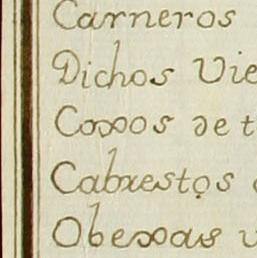 Carneros
Dichos Vie
Coxos de t
Cabrestos
Obexas v